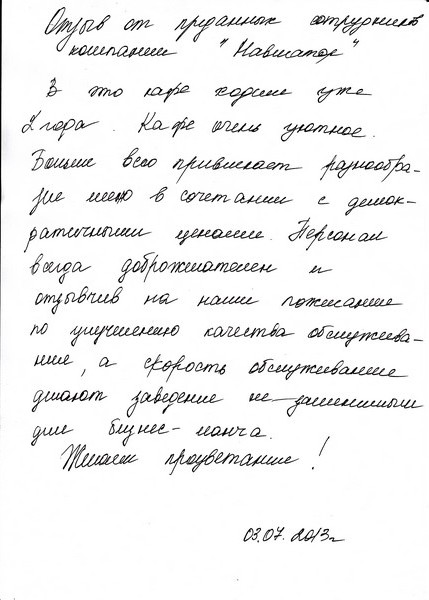 Отзыв от преданных сотрудников
компании "Навигатор"
В это кафе ходим уже
2 года. Кафе очень уютное.
Больше всего привлекает разнообра-
зие меню в сочетании с демок-
ратичными ценами. Персонал
всегда доброжелателен и
отзывчив на наши пожелания
по улучшению качества обслужива-
ния, а скорость обслуживания
делают заведение не заменимым
для бизнес-ланча.
Желаем процветания!
03.07.2013г